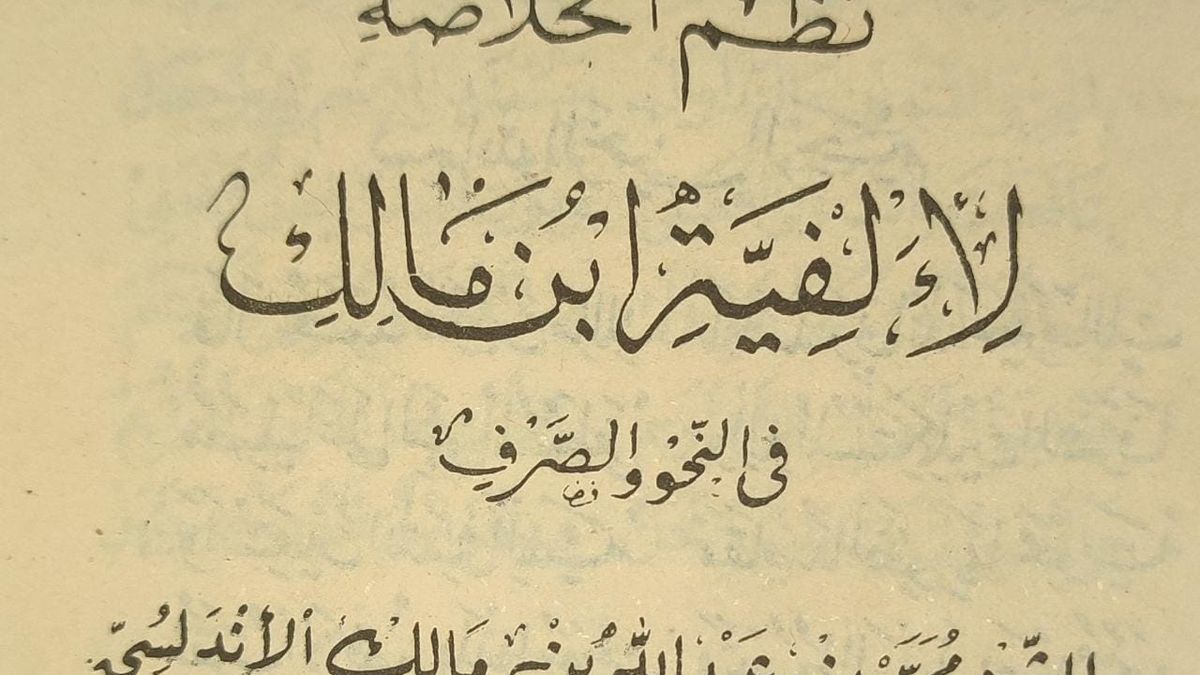 نظم الخلاصة
لِأَلْفِيَّةِ ابْنُ مَالِكِ
فى النَّحْوِ وَالصَّرْفِ
للشيخ مُحَمَّدْ بْن عَبْدِ اللّٰه بْنِ مَالِكْ الْأَنْدَلُسِىّ